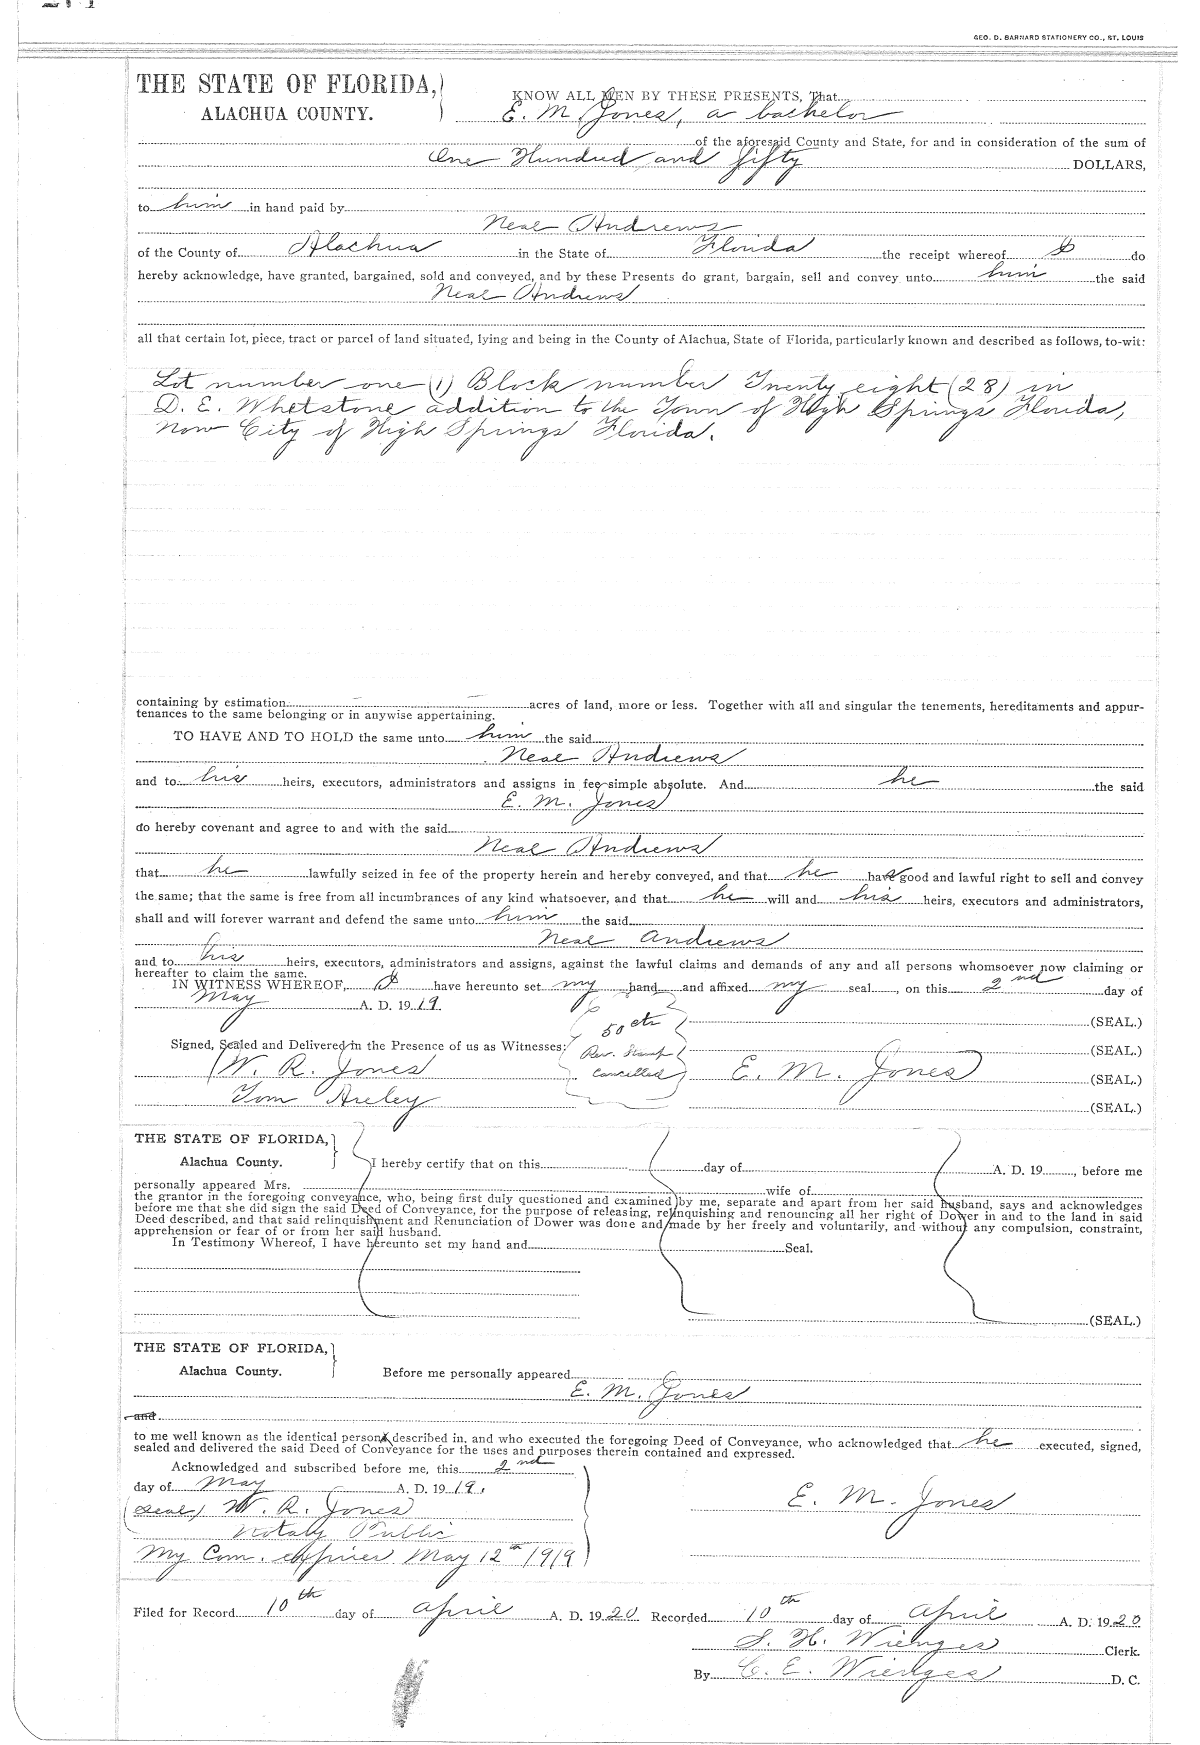 GEO. D. BARNARD STATIONERY CO., ST. LOUIS
THE STATE OF FLORIDA,
ALACHUA COUNTY.
KNOW ALL MEN BY THESE PRESENTS, That
E. M. Jones, a bachelor
of the aforesaid County and State, for and in consideration of the sum of
One Hundred and fifty DOLLARS,
to him in hand paid by
Neal Andrews
of the County of Alachua in the State of Florida the receipt whereof I do
hereby acknowledge, have granted, bargained, sold and conveyed, and by these Presents do grant, bargain, sell and convey unto him the said
Neal Andrews
all that certain lot, piece, tract or parcel of land situated, lying and being in the County of Alachua, State of Florida, particularly known and described as follows, to-wit:
Lot number one (1) Block number Twenty eight (28) in
D. E. Whetstone addition to the Town of High Springs Florida,
now City of High Springs Florida.
containing by estimation acres of land, more or less. Together with all and singular the tenements, hereditaments and appur-
tenances to the same belonging or in anywise appertaining.
TO HAVE AND TO HOLD the same unto him the said
Neal Andrews
and to his heirs, executors, administrators and assigns in fee simple absolute. And he the said
E. M. Jones
do hereby covenant and agree to and with the said
Neal Andrews
that he lawfully seized in fee of the property herein and hereby conveyed, and that he has good and lawful right to sell and convey
the same; that the same is free from all incumbrances of any kind whatsoever, and that he will and his heirs, executors and administrators,
shall and will forever warrant and defend the same unto him the said
Neal Andrews
and to his heirs, executors, administrators and assigns, against the lawful claims and demands of any and all persons whomsoever now claiming or
hereafter to claim the same.
IN WITNESS WHEREOF, I have hereunto set my hand and affixed my seal, on this 2nd day of
May A. D. 1919
(SEAL.)
50 cts
Signed, Sealed and Delivered in the Presence of us as Witnesses: Rev. Stamp (SEAL.)
W. R. Jones Cancelled E. M. Jones (SEAL.)
Tom (SEAL.)
THE STATE OF FLORIDA,
Alachua County.
I hereby certify that on this day of A. D. 19 , before me
personally appeared Mrs. wife of
the grantor in the foregoing conveyance, who, being first duly questioned and examined by me, separate and apart from her said husband, says and acknowledges
before me that she did sign the said Deed of Conveyance, for the purpose of releasing, relinquishing and renouncing all her right of Dower in and to the land in said
Deed described, and that said relinquishment and Renunciation of Dower was done and made by her freely and voluntarily, and without any compulsion, constraint,
apprehension or fear of or from her said husband.
In Testimony Whereof, I have hereunto set my hand and Seal.
(SEAL.)
THE STATE OF FLORIDA,
Alachua County.
Before me personally appeared
E. M. Jones
and
to me well known as the identical person described in, and who executed the foregoing Deed of Conveyance, who acknowledged that he executed, signed,
sealed and delivered the said Deed of Conveyance for the uses and purposes therein contained and expressed.
Acknowledged and subscribed before me, this 2nd
day of May A. D. 1919.
(Seal) W. R. Jones E. M. Jones
Notary Public
My Com. expires May 12th 1919
Filed for Record 10th day of April A. D. 1920 Recorded 10th day of April A. D. 1920
S. H. Wienges Clerk.
By C. E. Wienges D. C.